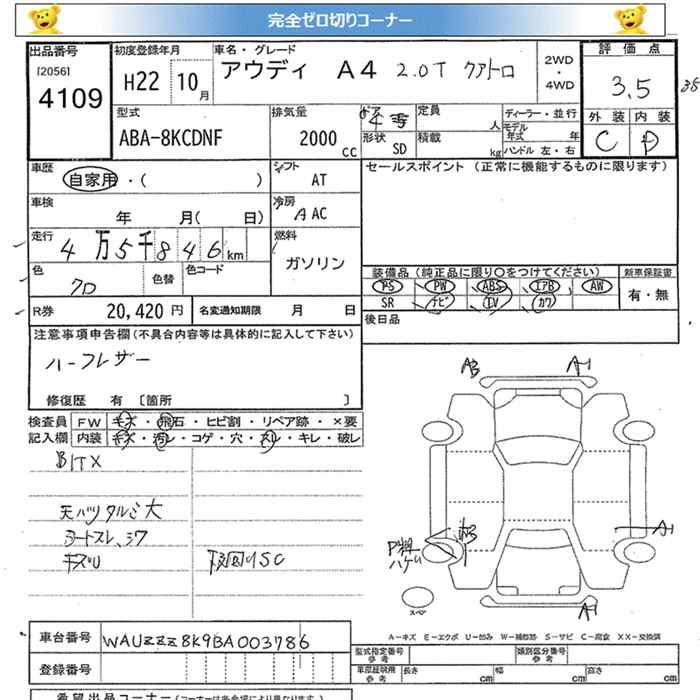 完全ゼロ切りコーナー
出品番号
[2056]
4109
初度登録年月
H22 10月
車名・グレード
アウディ A4 2.0T クアトロ
2WD・4WD
評価点
3.5
外装 内装
C
型式
ABA-8KCDNF
排気量
2000cc
ドア
形状
SD
定員
人
積載
kg
ディーラー・並行
モデル年式 年
ハンドル 左・右
車歴
自家用・( )
シフト
AT
セールスポイント (正常に機能するものに限ります)
車検
年 月( 日)
冷房
A AC
走行
4万5千846km
燃料
ガソリン
色
クロ
色替
色コード
装備品(純正品に限り〇をつけてください)
PS PW ABS エアB AW
SR ナビ TV カワ
新車保証書
有・無
R券
20,420円
名変通知期限 月 日
後日品
注意事項申告欄(不具合内容等は具体的に記入して下さい)
ハーフレザー
修復歴 有 [箇所 ]
検査員記入欄
FW キズ・飛石・ヒビ割・リペア跡・×要
内装 キズ・汚レ・コゲ・穴・スレ・キレ・破レ
天バリタルミ大
シートスレ、シワ
スペア
A-キズ E-エクボ U-凹み W-補修跡 S-サビ C-腐食 XX-交換済
車台番号
WAUZZZ8K9BA003786
登録番号
型式指定番号
参考
類別区分番号
参考
車庫証明用
参考
長さ cm
幅 cm
高さ cm
希望出品コーナー